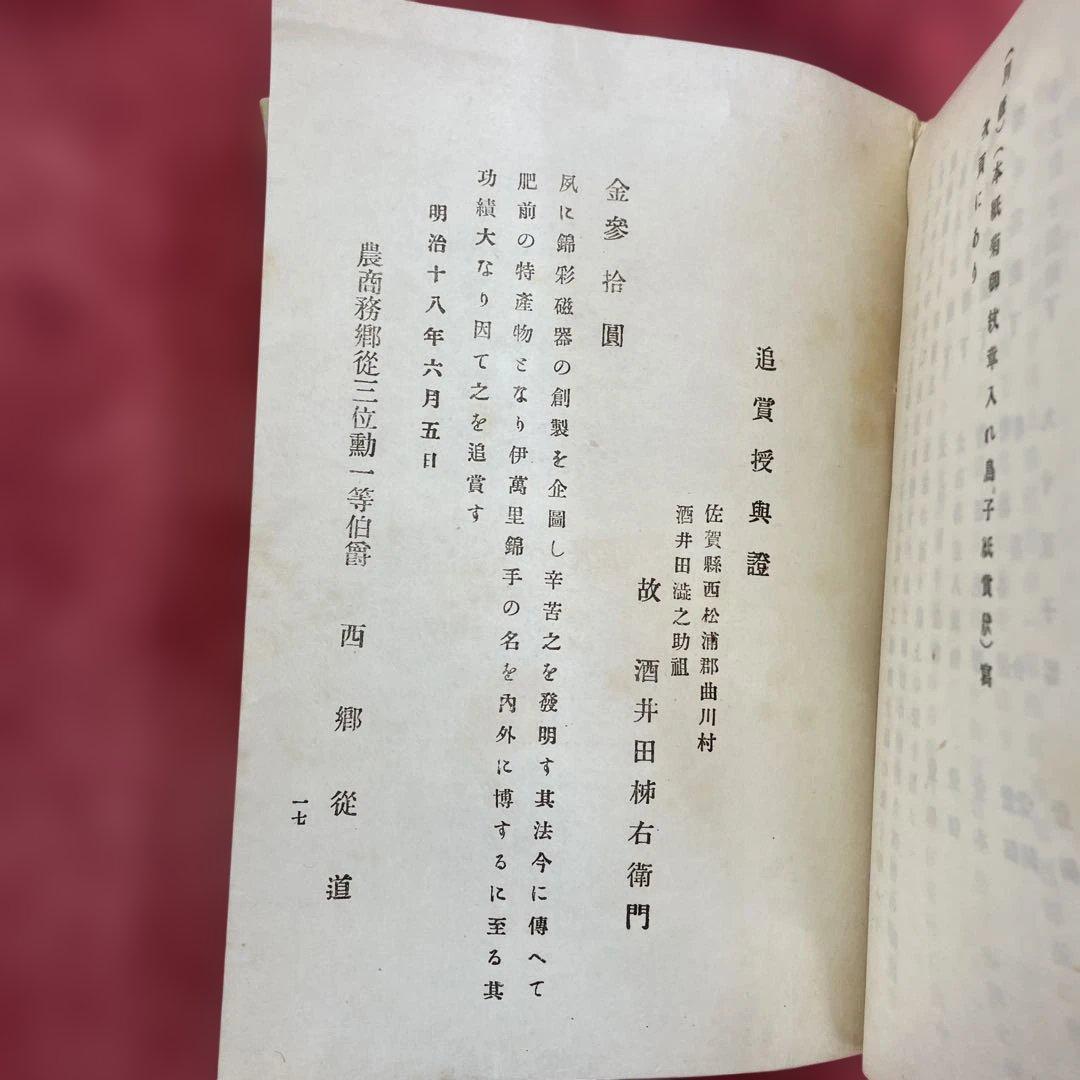 次頁にあり
追賞授與證
佐賀縣西松浦郡曲川村
酒井田澁之助祖
故 酒井田柹右衛門
金參拾圓
夙に錦彩磁器の創製を企圖し辛苦之を發明す其法今に傳へて
肥前の特產物となり伊萬里錦手の名を內外に博するに至る其
功績大なり因て之を追賞す
明治十八年六月五日
農商務鄉從三位勳一等伯爵 西鄉從道
一七